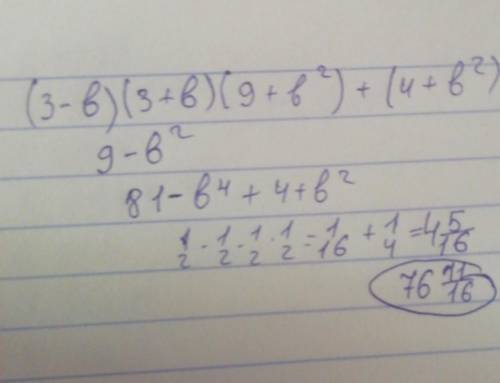 (3-b)(3+b)(9+b²)+(4+b²)
9-b²
81-b⁴+4+b²
1/2 · 1/2 · 1/2 · 1/2 = 1/16 + 1/4 = 4 5/16
76 11/16